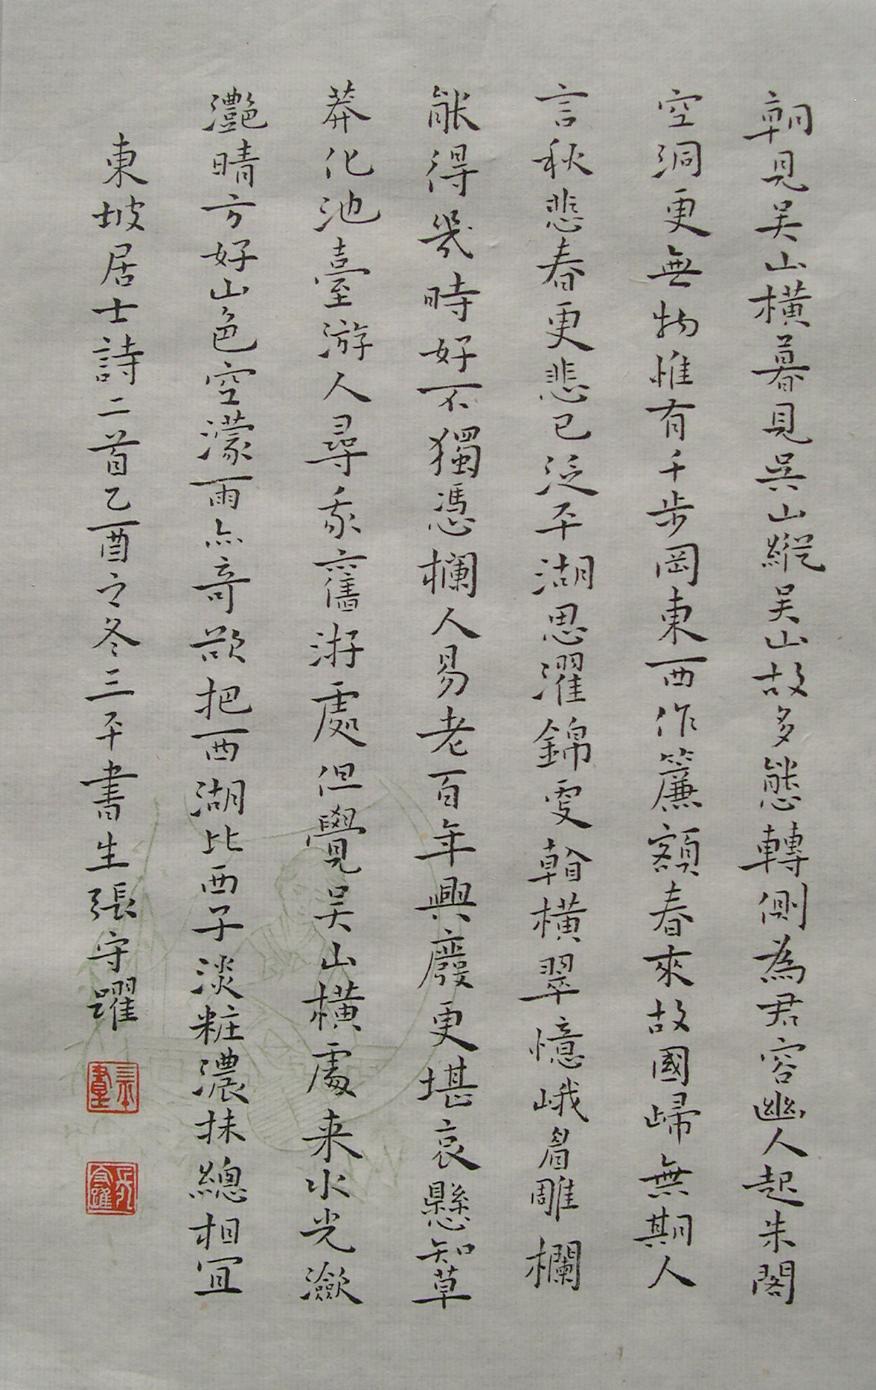 朝見吴山橫暮見吳山縱吴山故多態轉側為君容幽人起朱閣
空洞更無物惟有千步岡東西作簾額春來故國歸無期人
言秋悲春更悲已泛平湖思濯錦更看橫翠憶峨眉雕欄
能得幾時好不獨憑欄人易老百年興廢更堪哀懸知草
莽化池臺游人尋我舊游處但覓吴山橫處来水光瀲
灧晴方好山色空濛雨亦奇欲把西湖比西子淡粧濃抹總相宜
東坡居士詩二首乙酉之冬三平書生張守躍